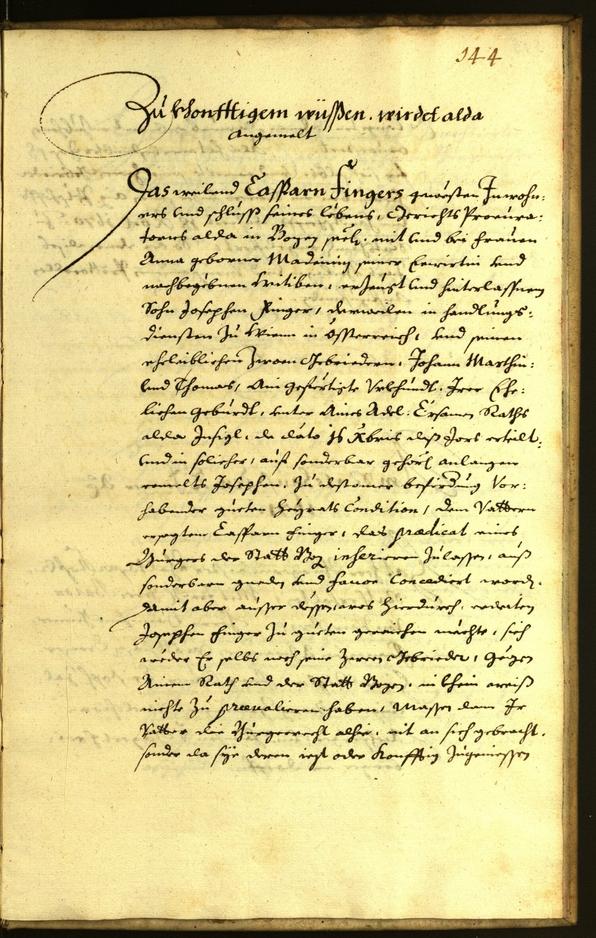 144
Zu khonfftigem wüssen. wirdet alda
angemelt
Das weilend Casparn Fingers gwesten Inwoh=
ners und schluss seines lebens, Gerichts Procura=
torns alda in Bozen seel: mit und bei frauen
Anna geborner Madinin seiner Ewirtin und
nachbegebnen wittiben, erzeugt und hinterlassnen
Sohn Josephen Finger, derweilen in handlungs=
diensten zu Wienn in Össterreich, und seinen
eheleiblichen zween Gebriedern, Johann Marthin
und Thomas, ain gefertigte Urkhundt, Irer Ehe=
lichen geburdt, unter Aines Adel: Ersamen Raths
alda Insigl, de dato 15 Xbris diss Jars erteilt,
und in solicher, auf sonderbar gehors: anlangen
ermelts Josephen, zu desstomer befirdung vor=
habender gueten heyrats Condition, dem Vattern
ersagten Casparn Finger, das praedicat eines
Burgers der Statt Boz: inserieren zulassen, auss
sonderbaren gnaden und favor Concediert worden.
Damit aber ausser dessen, was hierdurch, ermelten
Josephen Finger zu gueten geraichen mechte, sich
weder Er selbs noch seine zween Gebrieder, gegen
Ainem Rath und der Statt Bozen, in khein weiss
nichts zu praevalieren haben, Massen dann Ir
Vatter die Burgerrecht alhie, nit an sich gebracht,
sonder da sye deren iezt oder konfftig zugeniessen